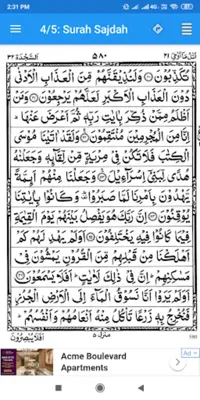 2:31 PM
4/5: Surah Sajdah
اتل ما اوحی ۲۱ ۵۸۰ السجدة ۳۲
تُكَذِّبُوْنَ ۝ وَلَنُذِيْقَنَّهُمْ مِّنَ الْعَذَابِ الْاَدْنٰى
دُوْنَ الْعَذَابِ الْاَكْبَرِ لَعَلَّهُمْ يَرْجِعُوْنَ ۝ وَمَنْ
اَظْلَمُ مِمَّنْ ذُكِّرَ بِاٰيٰتِ رَبِّهٖ ثُمَّ اَعْرَضَ عَنْهَا ؕ
اِنَّا مِنَ الْمُجْرِمِيْنَ مُنْتَقِمُوْنَ ۝ وَلَقَدْ اٰتَيْنَا مُوْسَى
الْكِتٰبَ فَلَا تَكُنْ فِيْ مِرْيَةٍ مِّنْ لِّقَآئِهٖ وَجَعَلْنٰهُ
هُدًى لِّبَنِيْٓ اِسْرَآءِيْلَ ۝ وَجَعَلْنَا مِنْهُمْ اَئِمَّةً
يَّهْدُوْنَ بِاَمْرِنَا لَمَّا صَبَرُوْا ؕ وَكَانُوْا بِاٰيٰتِنَا
يُوْقِنُوْنَ ۝ اِنَّ رَبَّكَ هُوَ يَفْصِلُ بَيْنَهُمْ يَوْمَ الْقِيٰمَةِ
فِيْمَا كَانُوْا فِيْهِ يَخْتَلِفُوْنَ ۝ اَوَلَمْ يَهْدِ لَهُمْ كَمْ
اَهْلَكْنَا مِنْ قَبْلِهِمْ مِّنَ الْقُرُوْنِ يَمْشُوْنَ فِيْ
مَسٰكِنِهِمْ ؕ اِنَّ فِيْ ذٰلِكَ لَاٰيٰتٍ ؕ اَفَلَا يَسْمَعُوْنَ ۝
اَوَلَمْ يَرَوْا اَنَّا نَسُوْقُ الْمَآءَ اِلَى الْاَرْضِ الْجُرُزِ
فَنُخْرِجُ بِهٖ زَرْعًا تَاْكُلُ مِنْهُ اَنْعَامُهُمْ وَاَنْفُسُهُمْ ؕ
منزل ۵
اَفَلَا يُبْصِرُوْنَ
Acme Boulevard
Apartments